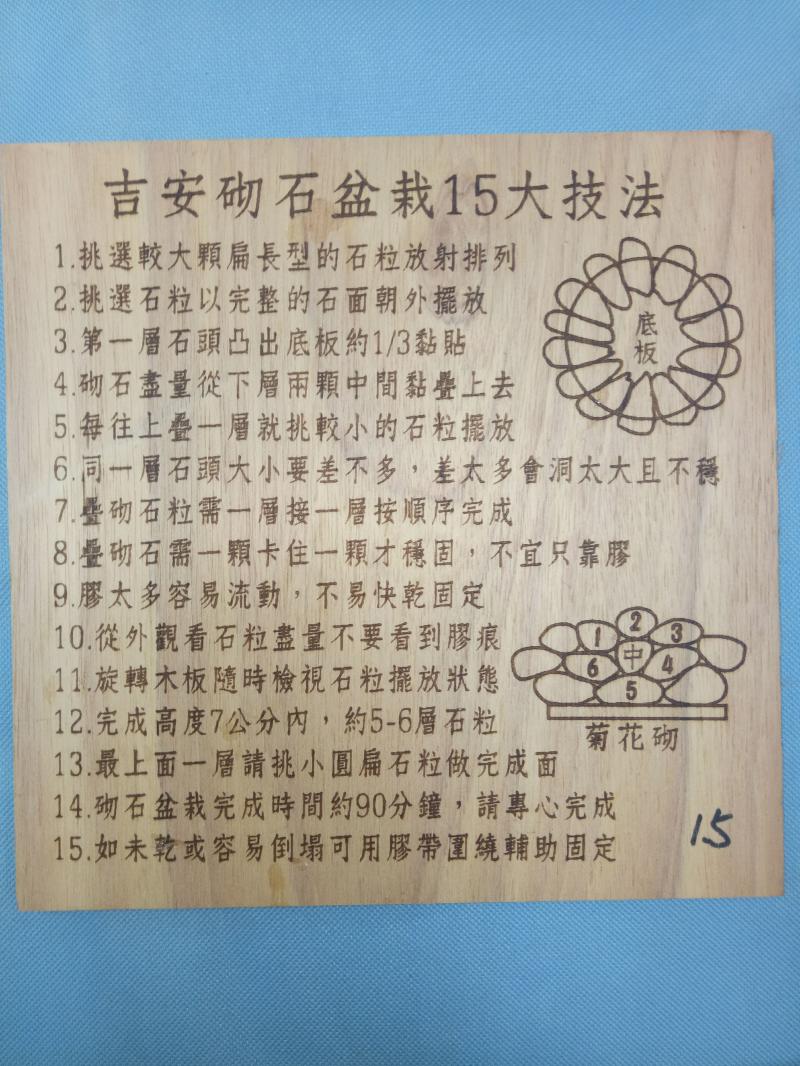 吉安砌石盆栽15大技法
1.挑選較大顆扁長型的石粒放射排列
2.挑選石粒以完整的石面朝外擺放
3.第一層石頭凸出底板約1/3黏貼
4.砌石盡量從下層兩顆中間黏疊上去
5.每往上疊一層就挑較小的石粒擺放
底
板
6.同一層石頭大小要差不多，差太多會洞太大且不穩
7.疊砌石粒需一層接一層按順序完成
8.疊砌石需一顆卡住一顆才穩固，不宜只靠膠
9.膠太多容易流動，不易快乾固定
10.從外觀看石粒盡量不要看到膠痕
11.旋轉木板隨時檢視石粒擺放狀態
12.完成高度7公分內，約5-6層石粒
1 2 3
6 中 4
5
菊花砌
13.最上面一層請挑小圓扁石粒做完成面
14.砌石盆栽完成時間約90分鐘，請專心完成
15.如未乾或容易倒塌可用膠帶圍繞輔助固定
15